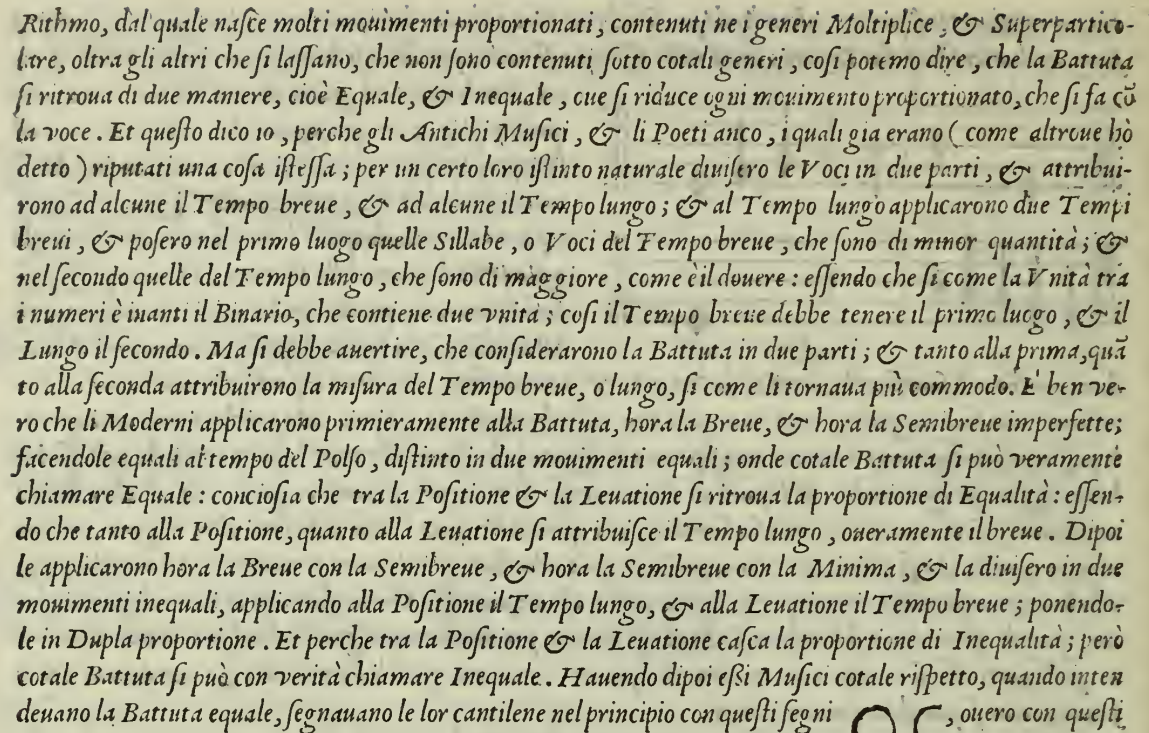 Rithmo, dal quale naſce molti mouimenti proportionati, contenuti ne i generi Moltiplice, & Superpartico-
lare, oltra gli altri che ſi laſſano, che non ſono contenuti ſotto cotali generi, coſi potemo dire, che la Battuta
ſi ritroua di due maniere, cioè Equale, & Inequale, oue ſi riduce ogni mouimento proportionato, che ſi fa cõ
la voce. Et queſto dico io, perche gli Antichi Muſici, & li Poeti anco, i quali gia erano (come altroue hò
detto) riputati una coſa iſteſſa; per un certo loro iſtinto naturale diuiſero le Voci in due parti, & attribui-
rono ad alcune il Tempo breue, & ad alcune il Tempo lungo; & al Tempo lungo applicarono due Tempi
breui, & poſero nel primo luogo quelle Sillabe, o Voci del Tempo breue, che ſono di minor quantità; &
nel ſecondo quelle del Tempo lungo, che ſono di maggiore, come è il douere: eſſendo che ſi come la Vnità tra
i numeri è inanti il Binario, che contiene due vnità; coſi il Tempo breue debbe tenere il primo luogo, & il
Lungo il ſecondo. Ma ſi debbe auertire, che conſiderarono la Battuta in due parti; & tanto alla prima, quã
to alla ſeconda attribuirono la miſura del Tempo breue, o lungo, ſi come li tornaua più commodo. E' ben ve-
ro che li Moderni applicarono primieramente alla Battuta, hora la Breue, & hora la Semibreue imperfette;
facendole equali al tempo del Polſo, diſtinto in due mouimenti equali; onde cotale Battuta ſi può veramente
chiamare Equale: concioſia che tra la Poſitione & la Leuatione ſi ritroua la proportione di Equalità: eſſen-
do che tanto alla Poſitione, quanto alla Leuatione ſi attribuiſce il Tempo lungo, oueramente il breue. Dipoi
le applicarono hora la Breue con la Semibreue, & hora la Semibreue con la Minima, & la diuiſero in due
mouimenti inequali, applicando alla Poſitione il Tempo lungo, & alla Leuatione il Tempo breue; ponendo-
le in Dupla proportione. Et perche tra la Poſitione & la Leuatione caſca la proportione di Inequalità; però
cotale Battuta ſi può con verità chiamare Inequale. Hauendo dipoi eſſi Muſici cotale riſpetto, quando inten
deuano la Battuta equale, ſegnauano le lor cantilene nel principio con queſti ſegni , ouero con queſti